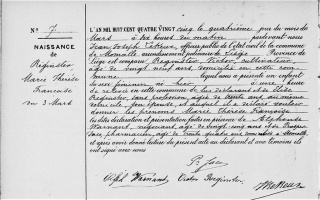 N° 7
NAISSANCE
de
Register
Marie Thérèse
Francoise
du 3 Mars
L'AN MIL HUIT CENT QUATRE VINGT cinq le quatrième jour du mois de
Mars à dix heures du matin pardevant nous
Jean Joseph officier public de l'état civil de la commune
de Momalle arrondissement judiciaire de Liége Province de
Liége est comparu Victor, cultivateur
âgé de vingt neuf ans domicilié en cette com
mune lequel nous a présenté un enfant
du sexe féminin né hier à une heure
de en cette commune de lui déclarant et de Elise
sans profession, âgée de trente ans au même
domicile, son épouse et auquel il a déclaré vouloir
donner les prénoms Marie Thérèse Françoise
les dites déclaration et présentation faites en présence de Alphonse
Warnant, négociant, âgé de vingt cinq ans et de Prosper
pharmacien, âgé de trente quatre ans domiciliés à Momalle,
et après avoir donné lecture du présent acte au déclarant et aux témoins ils
ont signé avec nous
Alph Warnant Victor